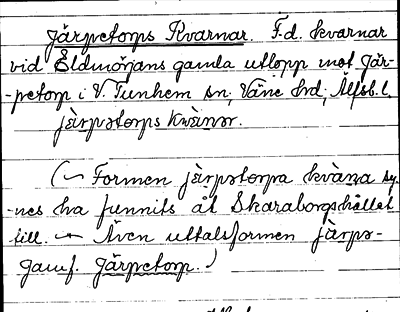 Järpetorps Kvarnar. F.d. kvarnar
vid Eldmörjans gamla utlopp mot Jär-
-petorp i V. Tunhem sn, Väne hd, Älfsb. l.
jàrpstorps kvànər.
(~ Formen jàrpstorpa kvàna sy-
-nes ha funnits åt Skaraborgshållet
till. — Även uttalsformen jàrpə-
Jämf. Järpetorp.)